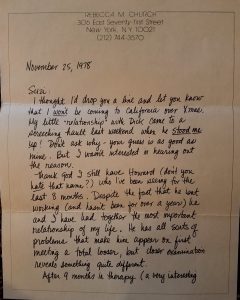 REBECCA M. CHURCH
306 East Seventy-first Street
New York, N.Y. 10021
(212) 744-3570
November 25, 1978
Susi-
I thought I'd drop you a line and let you know
that I won't be coming to California over Xmas.
My little "relationship" with Dick came to a
screeching hault last weekend when he stood me
up! Don't ask why - your guess is as good as
mine. But I wasn't interested in hearing out
the reason.
Thank God I still have Howard (don't you
hate that name?) who I've been seeing for the
last 8 months. Despite the fact that he isn't
working (and hasn't been for over a year) he
and I have had together the most important
relationship of my life. He has all sorts of
problems that make him appear on first
meeting a total loser, but closer examination
reveals something quite different.
After 9 months in therapy (a very interesting